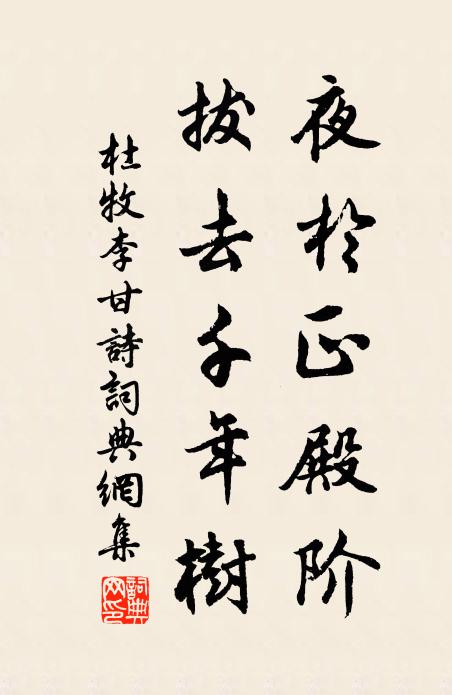 夜於正殿阶
拔去千年樹
杜牧李甘詩詞典網集
詞典网印